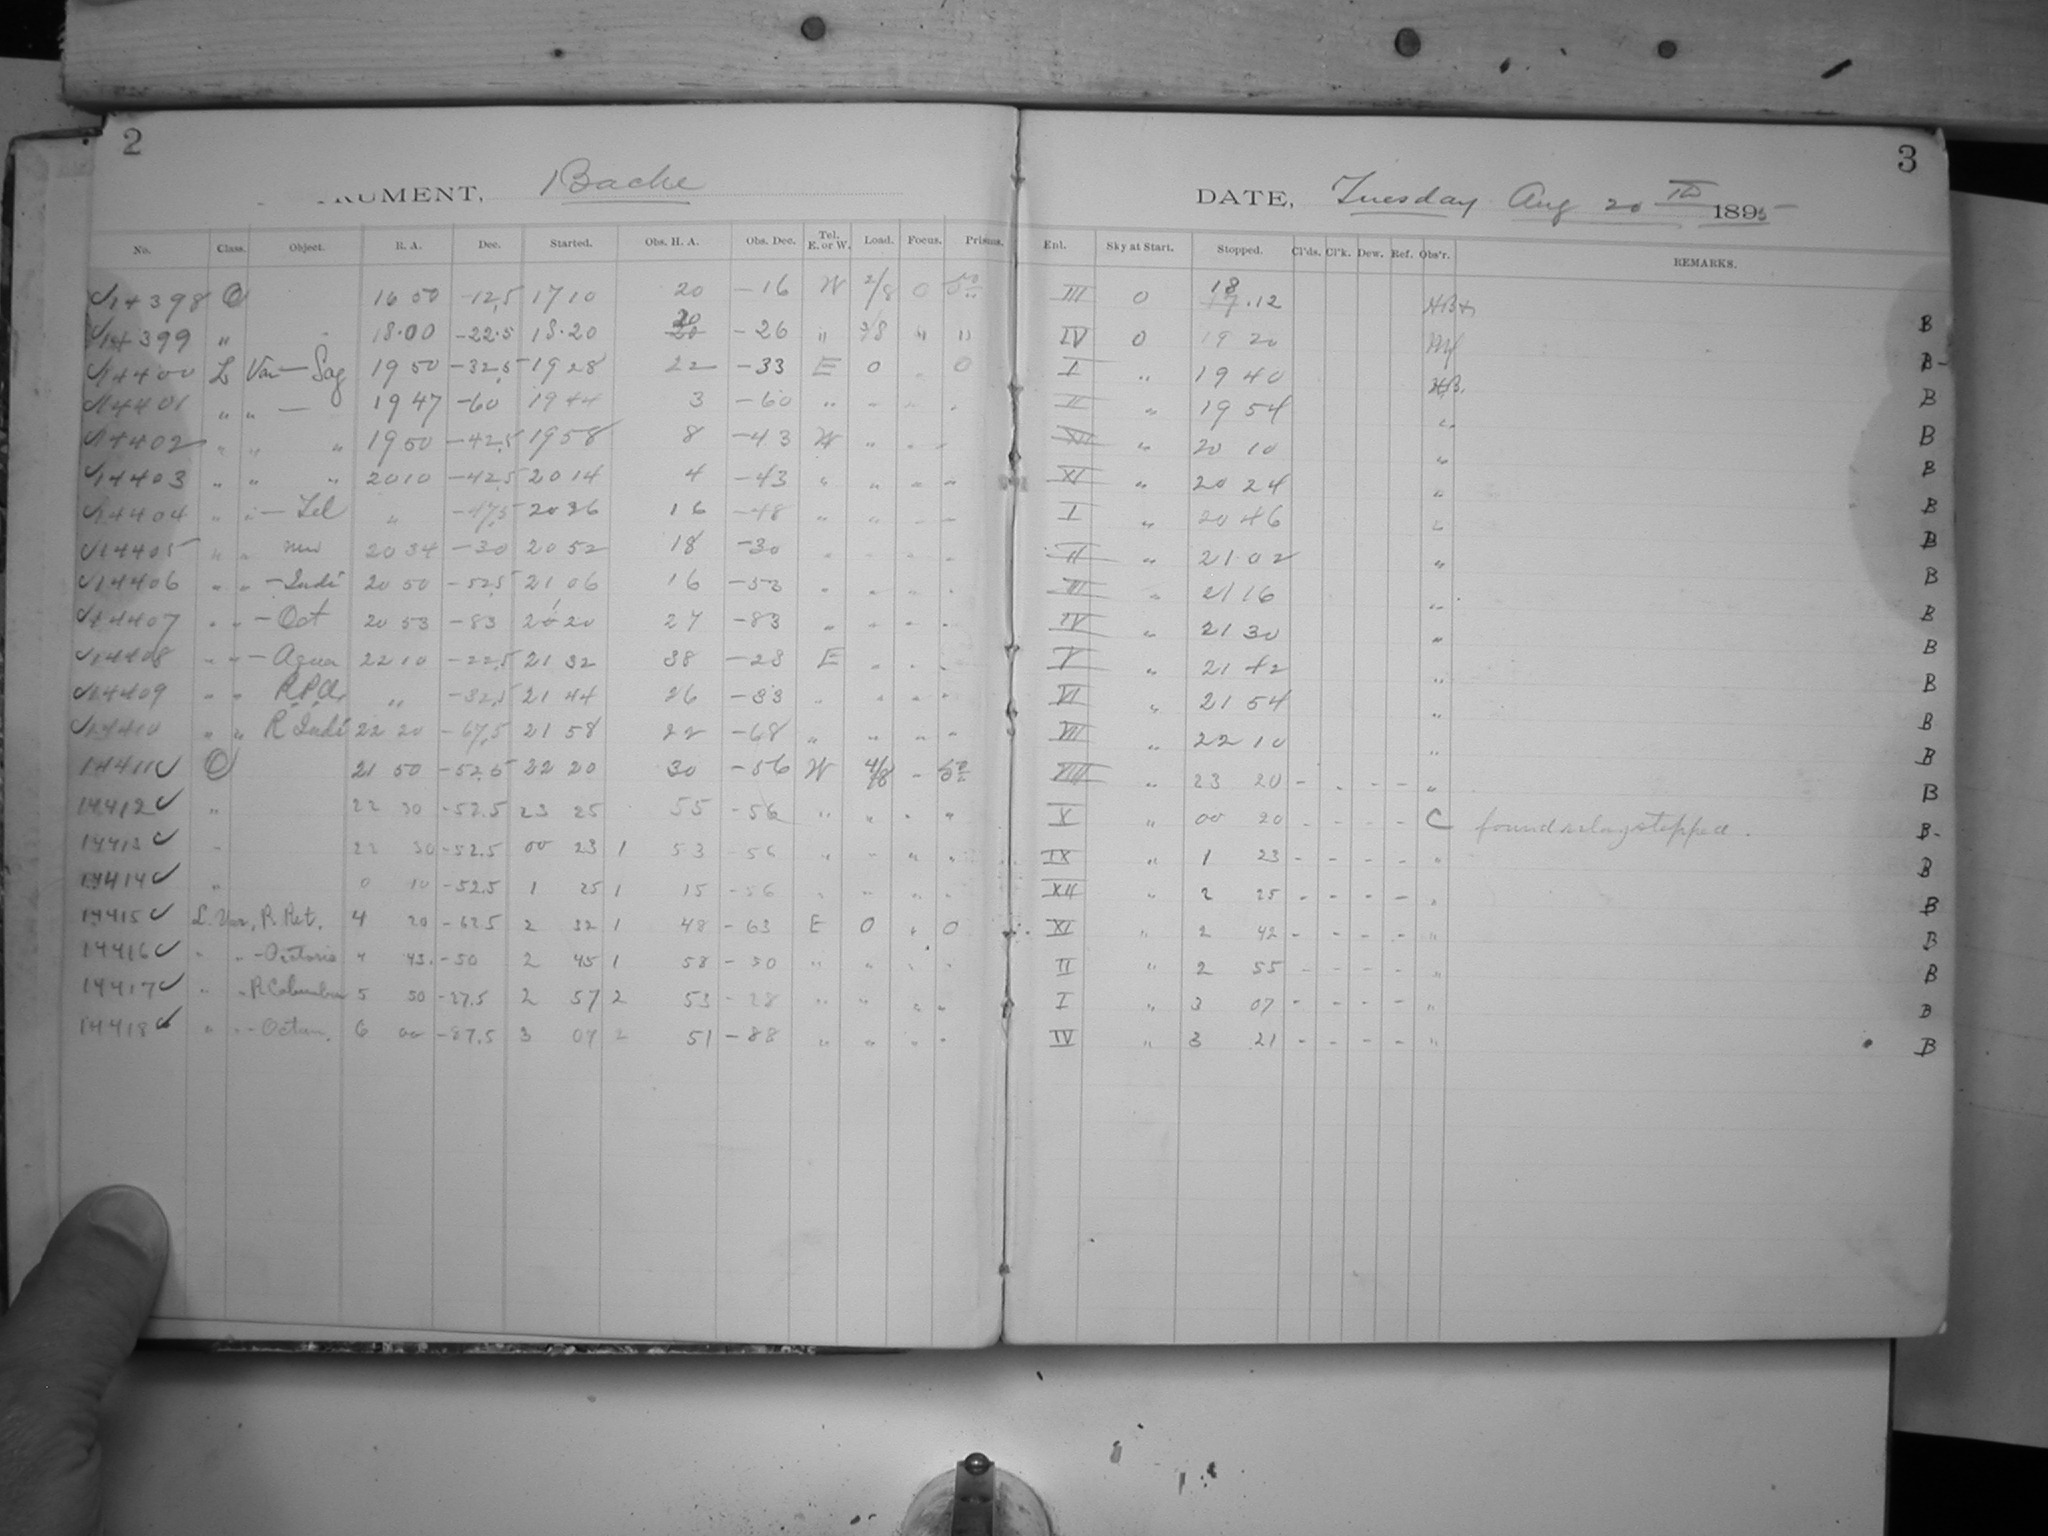 2
RUMENT, Bache
No. Class. Object. R. A. Dec. Started. Obs. H. A. Obs. Dec. Tel. E. or W. Load. Focus. Prisms.
14398 O 16 50 -12.5 17 10 20 -16 W 2/8 0
14399 " 18.00 -22.5 18.20 20 -26 " 2/8 " "
14400 L Var — Sag 19 50 -32.5 19 28 22 -33 E 0 0
14401 " " — 19 47 -60 19 44 3 -60 " " " "
14402 " " " 19 50 -42.5 19 58 8 -43 W " " "
14403 " " " 20 10 -42.5 20 14 4 -43 " " " "
14404 " " — Tel " -47.5 20 36 16 -48 " " " "
14405 " " 20 34 -30 20 52 18 -30 " " "
14406 " " — Indi 20 50 -52.5 21 06 16 -53 " " " "
14407 " " — Oct 20 53 -83 21 20 27 -83 " " " "
14408 " " — Aqua 22 10 -22.5 21 32 38 -23 E " " "
14409 " " " -32.5 21 44 26 -33 " " " "
14410 " " R Indi 22 20 -67.5 21 58 22 -68 " " " "
14411 O 21 50 -52.5 22 20 30 -56 W 4/8 "
14412 " 22 30 -52.5 23 25 55 -56 " " " "
14413 " 22 30 -52.5 00 23 1 53 -56 " " " "
14414 " 0 10 -52.5 1 25 1 15 -56 " " " "
14415 L Var. R. Ret. 4 20 -62.5 2 32 1 48 -63 E 0 " 0
14416 " " — 4 45 -50 2 45 1 58 -50 " " " "
14417 " " R Columbae 5 50 -27.5 2 57 2 53 -28 " " " "
14418 " " — Octan. 6 00 -87.5 3 07 2 51 -88 " " " "
3
DATE, Tuesday Aug 20th 1895
Enl. Sky at Start. Stopped. Cl'ds. Cl'k. Dew. Ref. Obs'r. REMARKS.
III 0 18.12 B
IV 0 19 20 B-
I " 19 40 B
II " 19 54 " B
XII " 20 10 " B
XI " 20 24 " B
I " 20 46 " B
II " 21 02 " B
III " 21 16 " B
IV " 21 30 " B
V " 21 42 " B
VI " 21 54 " B
VII " 22 10 " B
VIII " 23 20 - - - - " B
X " 00 20 - - - - C found relay stopped. B-
IX " 1 23 - - - - " B
XII " 2 25 - - - - " B
XI " 2 42 - - - - " B
II " 2 55 - - - - " B
I " 3 07 - - - - " B
IV " 3 21 - - - - " B